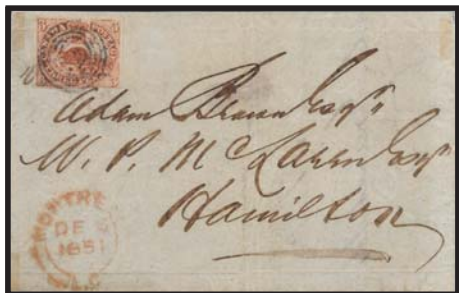 Adam Brown Esqr
W. P. McLaren Esqr
Hamilton
MONTRE
DE
1851
L.C